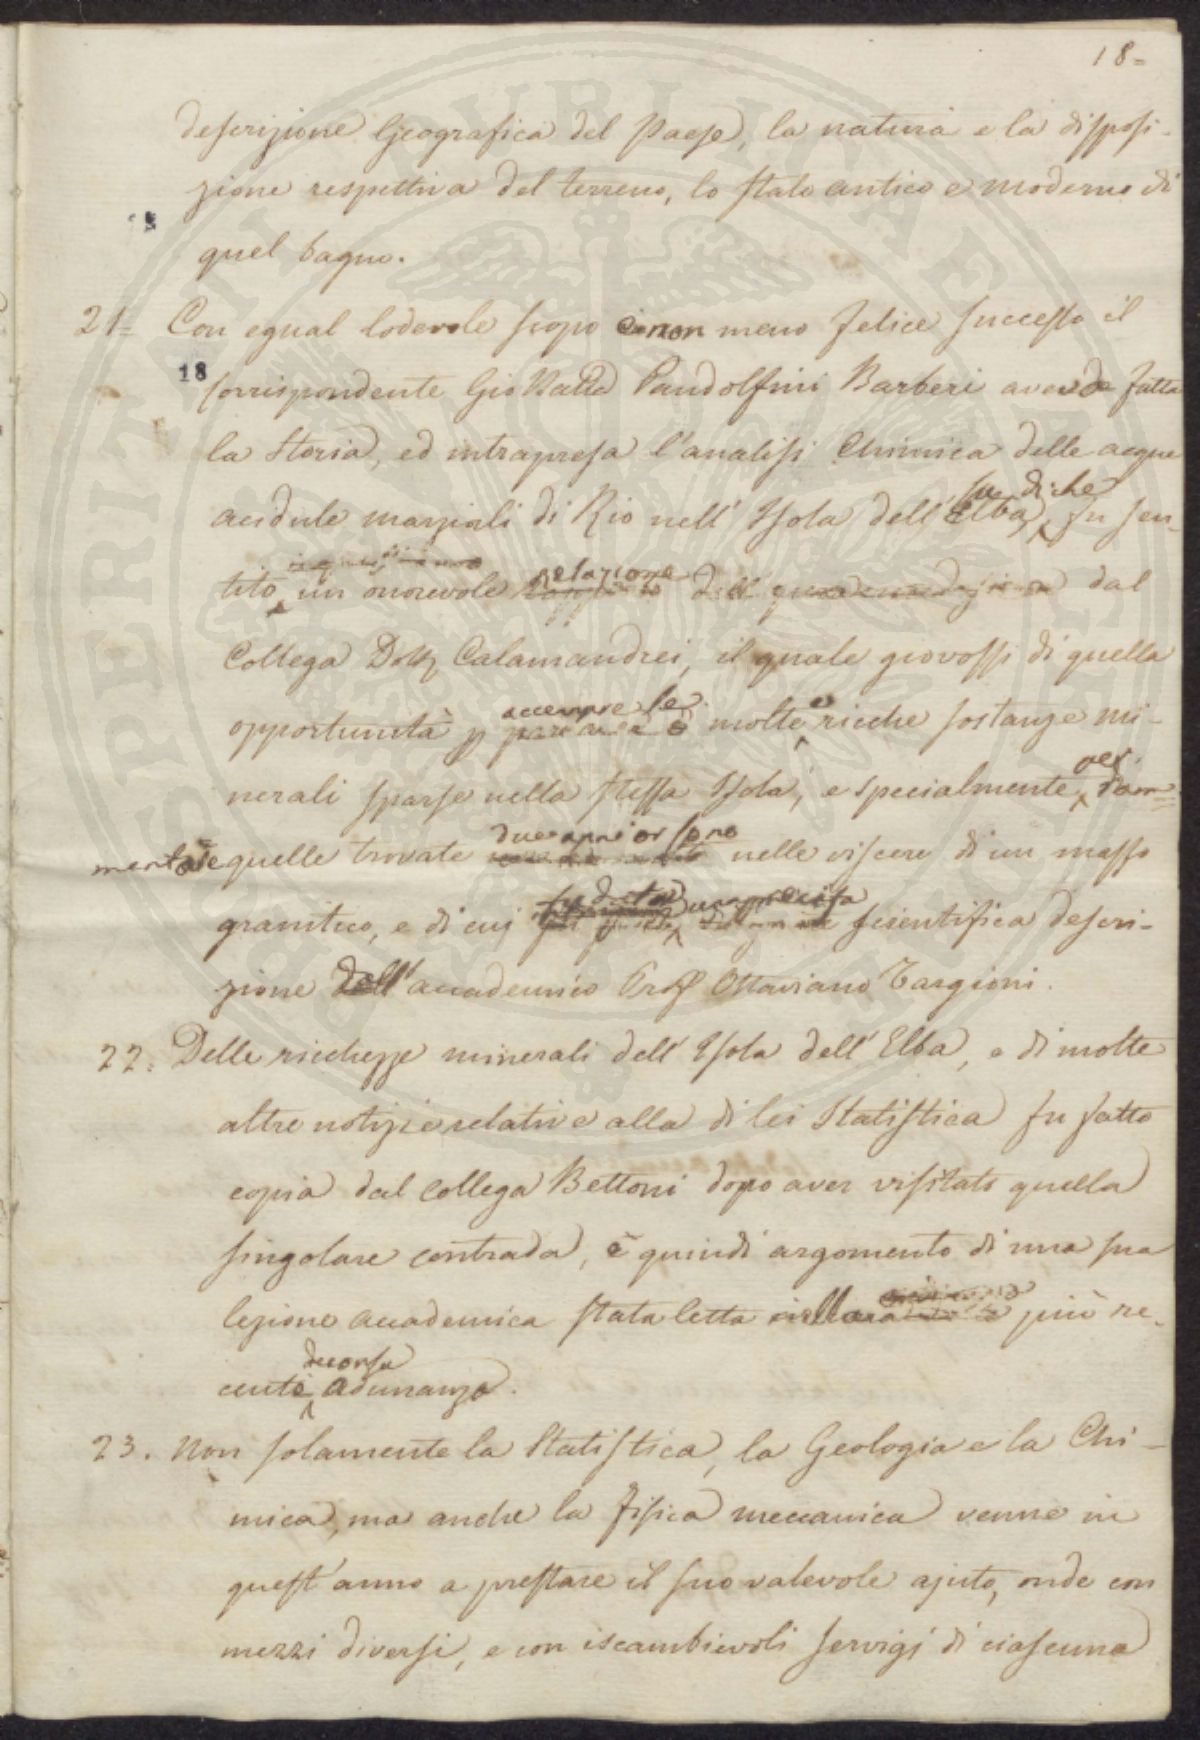 18=
descrizione Geografica del Paese, la natura e la disposi-
zione respettiva del terreno, lo stato antico e moderno di
quel bagno.
21= Con egual lodevole scopo e non meno felice successo il
18
Corrispondente Gio Batta Pandolfini Barberi avendo fatta
la Storia, ed intrapresa l'analisi Chimica delle acque
su di che
acidule marziali di Rio nell' Isola dell' Elba, fu sen-
relazione
tito, un onorevole dal
Collega Dott. Calamandrei, il quale giovossi di quella
accennare le
opportunità p molte e ricche sostanze mi-
per
nerali sparse nella stessa Isola, e specialmente, ram-
due anni or sono
mentare quelle trovate nelle viscere di un masso
fu data una precisa
granitico, e di cui scientifica descri-
zione dall' accademico Prof Ottaviano Targioni.
22. Delle ricchezze minerali dell' Isola dell' Elba, e di molte
altre notizie relative alla di lei Statistica fu fatto
copia dal collega Bettoni dopo aver visitato quella
singolare contrada, e quindi argomento di una sua
lezione accademica stata letta nella più re-
decorsa
cente adunanza.
23. Non solamente la Statistica, la Geologia e la Chi-
mica, ma anche la fisica meccanica venne in
quest' anno a prestare il suo valevole ajuto, onde con
mezzi diversi, e con iscambievoli servigi di ciascuna
SPERITATI PUBLICAE